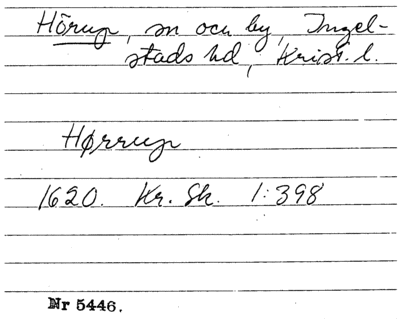 Hörup, sn och by, Ingel-
stads hd, Krist. l.
Hørrup
1620. Kr. Sk. 1:398
Nr 5446.